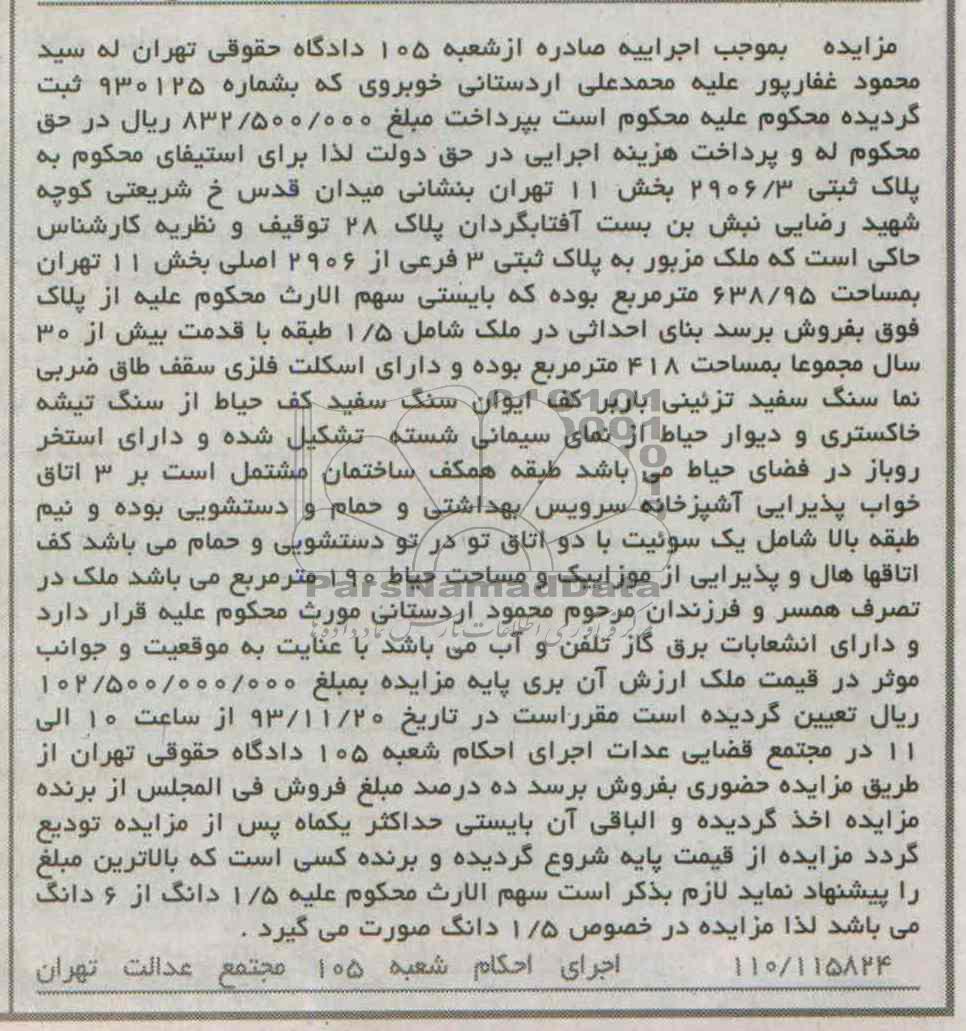 مزایده بموجب اجراییه صادره ازشعبه ۱۰۵ دادگاه حقوقی تهران له سید
محمود غفارپور علیه محمدعلی اردستانی خوبروی که بشماره ۹۳۰۱۲۵ ثبت
گردیده محکوم علیه محکوم است بپرداخت مبلغ ۸۳۲/۵۰۰/۰۰۰ ریال در حق
محکوم له و پرداخت هزینه اجرایی در حق دولت لذا برای استیفای محکوم به
پلاک ثبتی ۲۹۰۶/۳ بخش ۱۱ تهران بنشانی میدان قدس خ شریعتی کوچه
شهید رضایی نبش بن بست آفتابگردان پلاک ۲۸ توقیف و نظریه کارشناس
حاکی است که ملک مزبور به پلاک ثبتی ۳ فرعی از ۲۹۰۶ اصلی بخش ۱۱ تهران
بمساحت ۶۳۸/۹۵ مترمربع بوده که بایستی سهم الارث محکوم علیه از پلاک
فوق بفروش برسد بنای احداثی در ملک شامل ۱/۵ طبقه با قدمت بیش از ۳۰
سال مجموعا بمساحت ۴۱۸ مترمربع بوده و دارای اسکلت فلزی سقف طاق ضربی
نما سنگ سفید تزئینی باربر کف ایوان سنگ سفید کف حیاط از سنگ تیشه
خاکستری و دیوار حیاط از نمای سیمانی شسته تشکیل شده و دارای استخر
روباز در فضای حیاط می باشد طبقه همکف ساختمان مشتمل است بر ۳ اتاق
خواب پذیرایی آشپزخانه سرویس بهداشتی و حمام و دستشویی بوده و نیم
طبقه بالا شامل یک سوئیت با دو اتاق تو در تو دستشویی و حمام می باشد کف
اتاقها هال و پذیرایی از موزاییک و مساحت حیاط ۱۹۰ مترمربع می باشد ملک در
ParsNamadData
تصرف همسر و فرزندان مرحوم محمود اردستانی مورث محکوم علیه قرار دارد
و دارای انشعابات برق گاز تلفن و آب می باشد با عنایت به موقعیت و جوانب
موثر در قیمت ملک ارزش آن بری پایه مزایده بمبلغ ۱۰۲/۵۰۰/۰۰۰/۰۰۰
ریال تعیین گردیده است مقرراست در تاریخ ۹۳/۱۱/۲۰ از ساعت ۱۰ الی
۱۱ در مجتمع قضایی عدات اجرای احکام شعبه ۱۰۵ دادگاه حقوقی تهران از
طریق مزایده حضوری بفروش برسد ده درصد مبلغ فروش فی المجلس از برنده
مزایده اخذ گردیده و الباقی آن بایستی حداکثر یکماه پس از مزایده تودیع
گردد مزایده از قیمت پایه شروع گردیده و برنده کسی است که بالاترین مبلغ
را پیشنهاد نماید لازم بذکر است سهم الارث محکوم علیه ۱/۵ دانگ از ۶ دانگ
می باشد لذا مزایده در خصوص ۱/۵ دانگ صورت می گیرد .
۱۱۰/۱۱۵۸۲۴ اجرای احکام شعبه ۱۰۵ مجتمع عدالت تهران